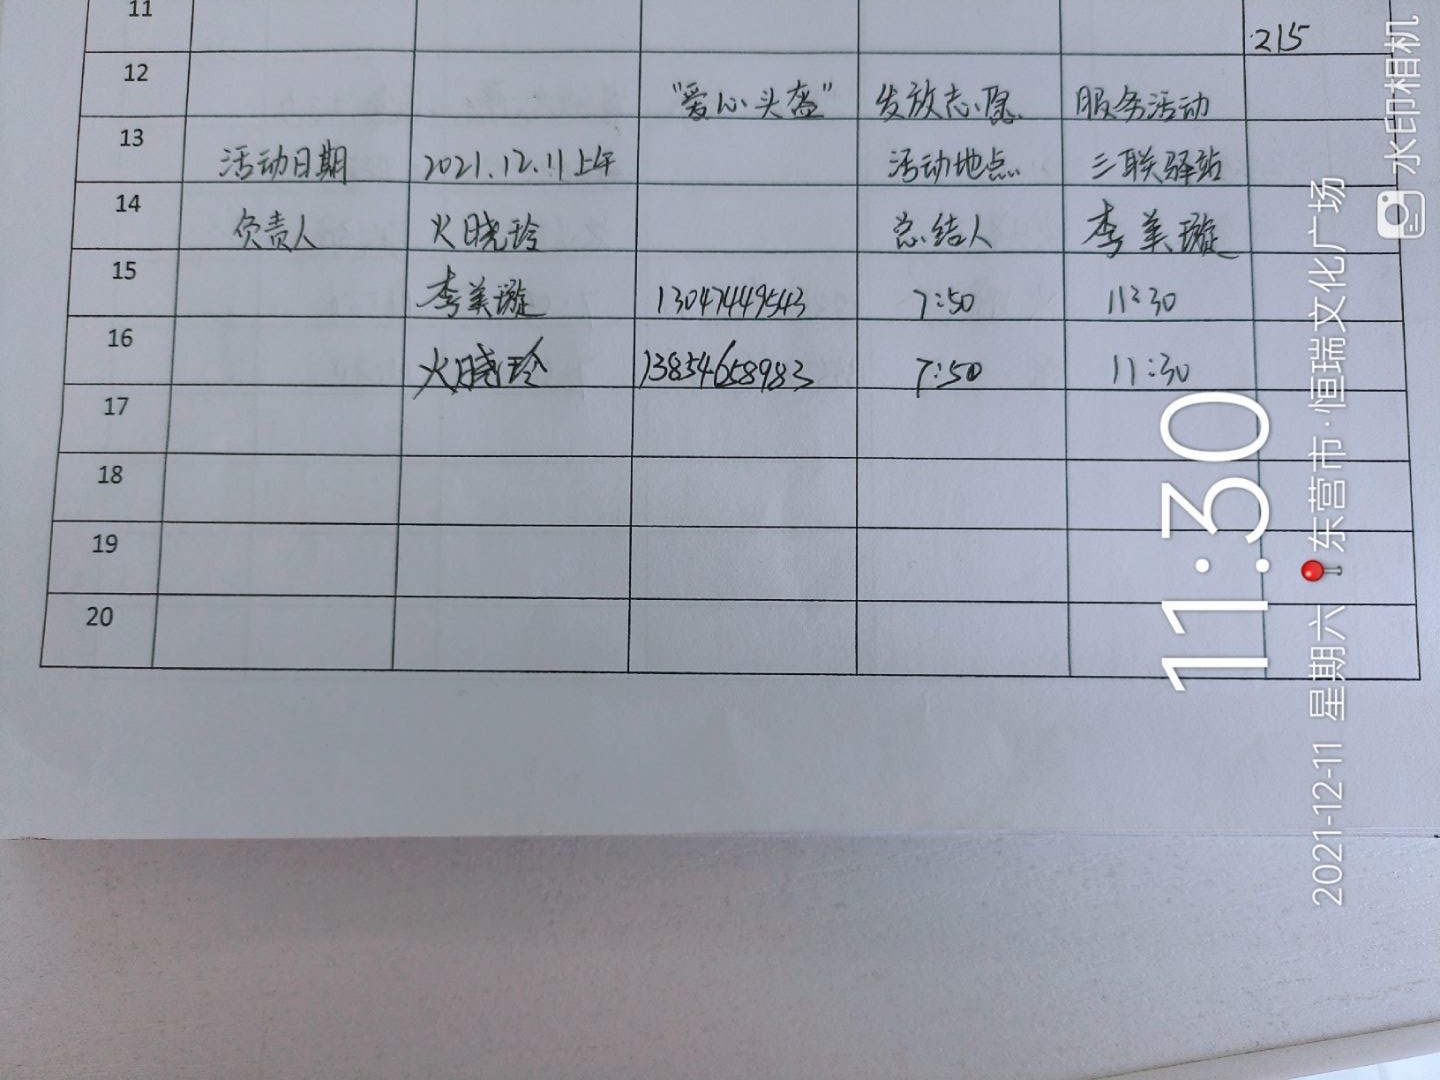 11 215
12 "爱心头盔" 发放志愿 服务活动
13 活动日期 2021.12.11上午 活动地点 三联驿站
14 负责人 火晓玲 总结人 李美璇
15 李美璇 13047449543 7:50 11:30
16 火晓玲 13854658983 7:50 11:30
17
18
19
20
11:30
2021-12-11 星期六 东营市·恒瑞文化广场
水印相机